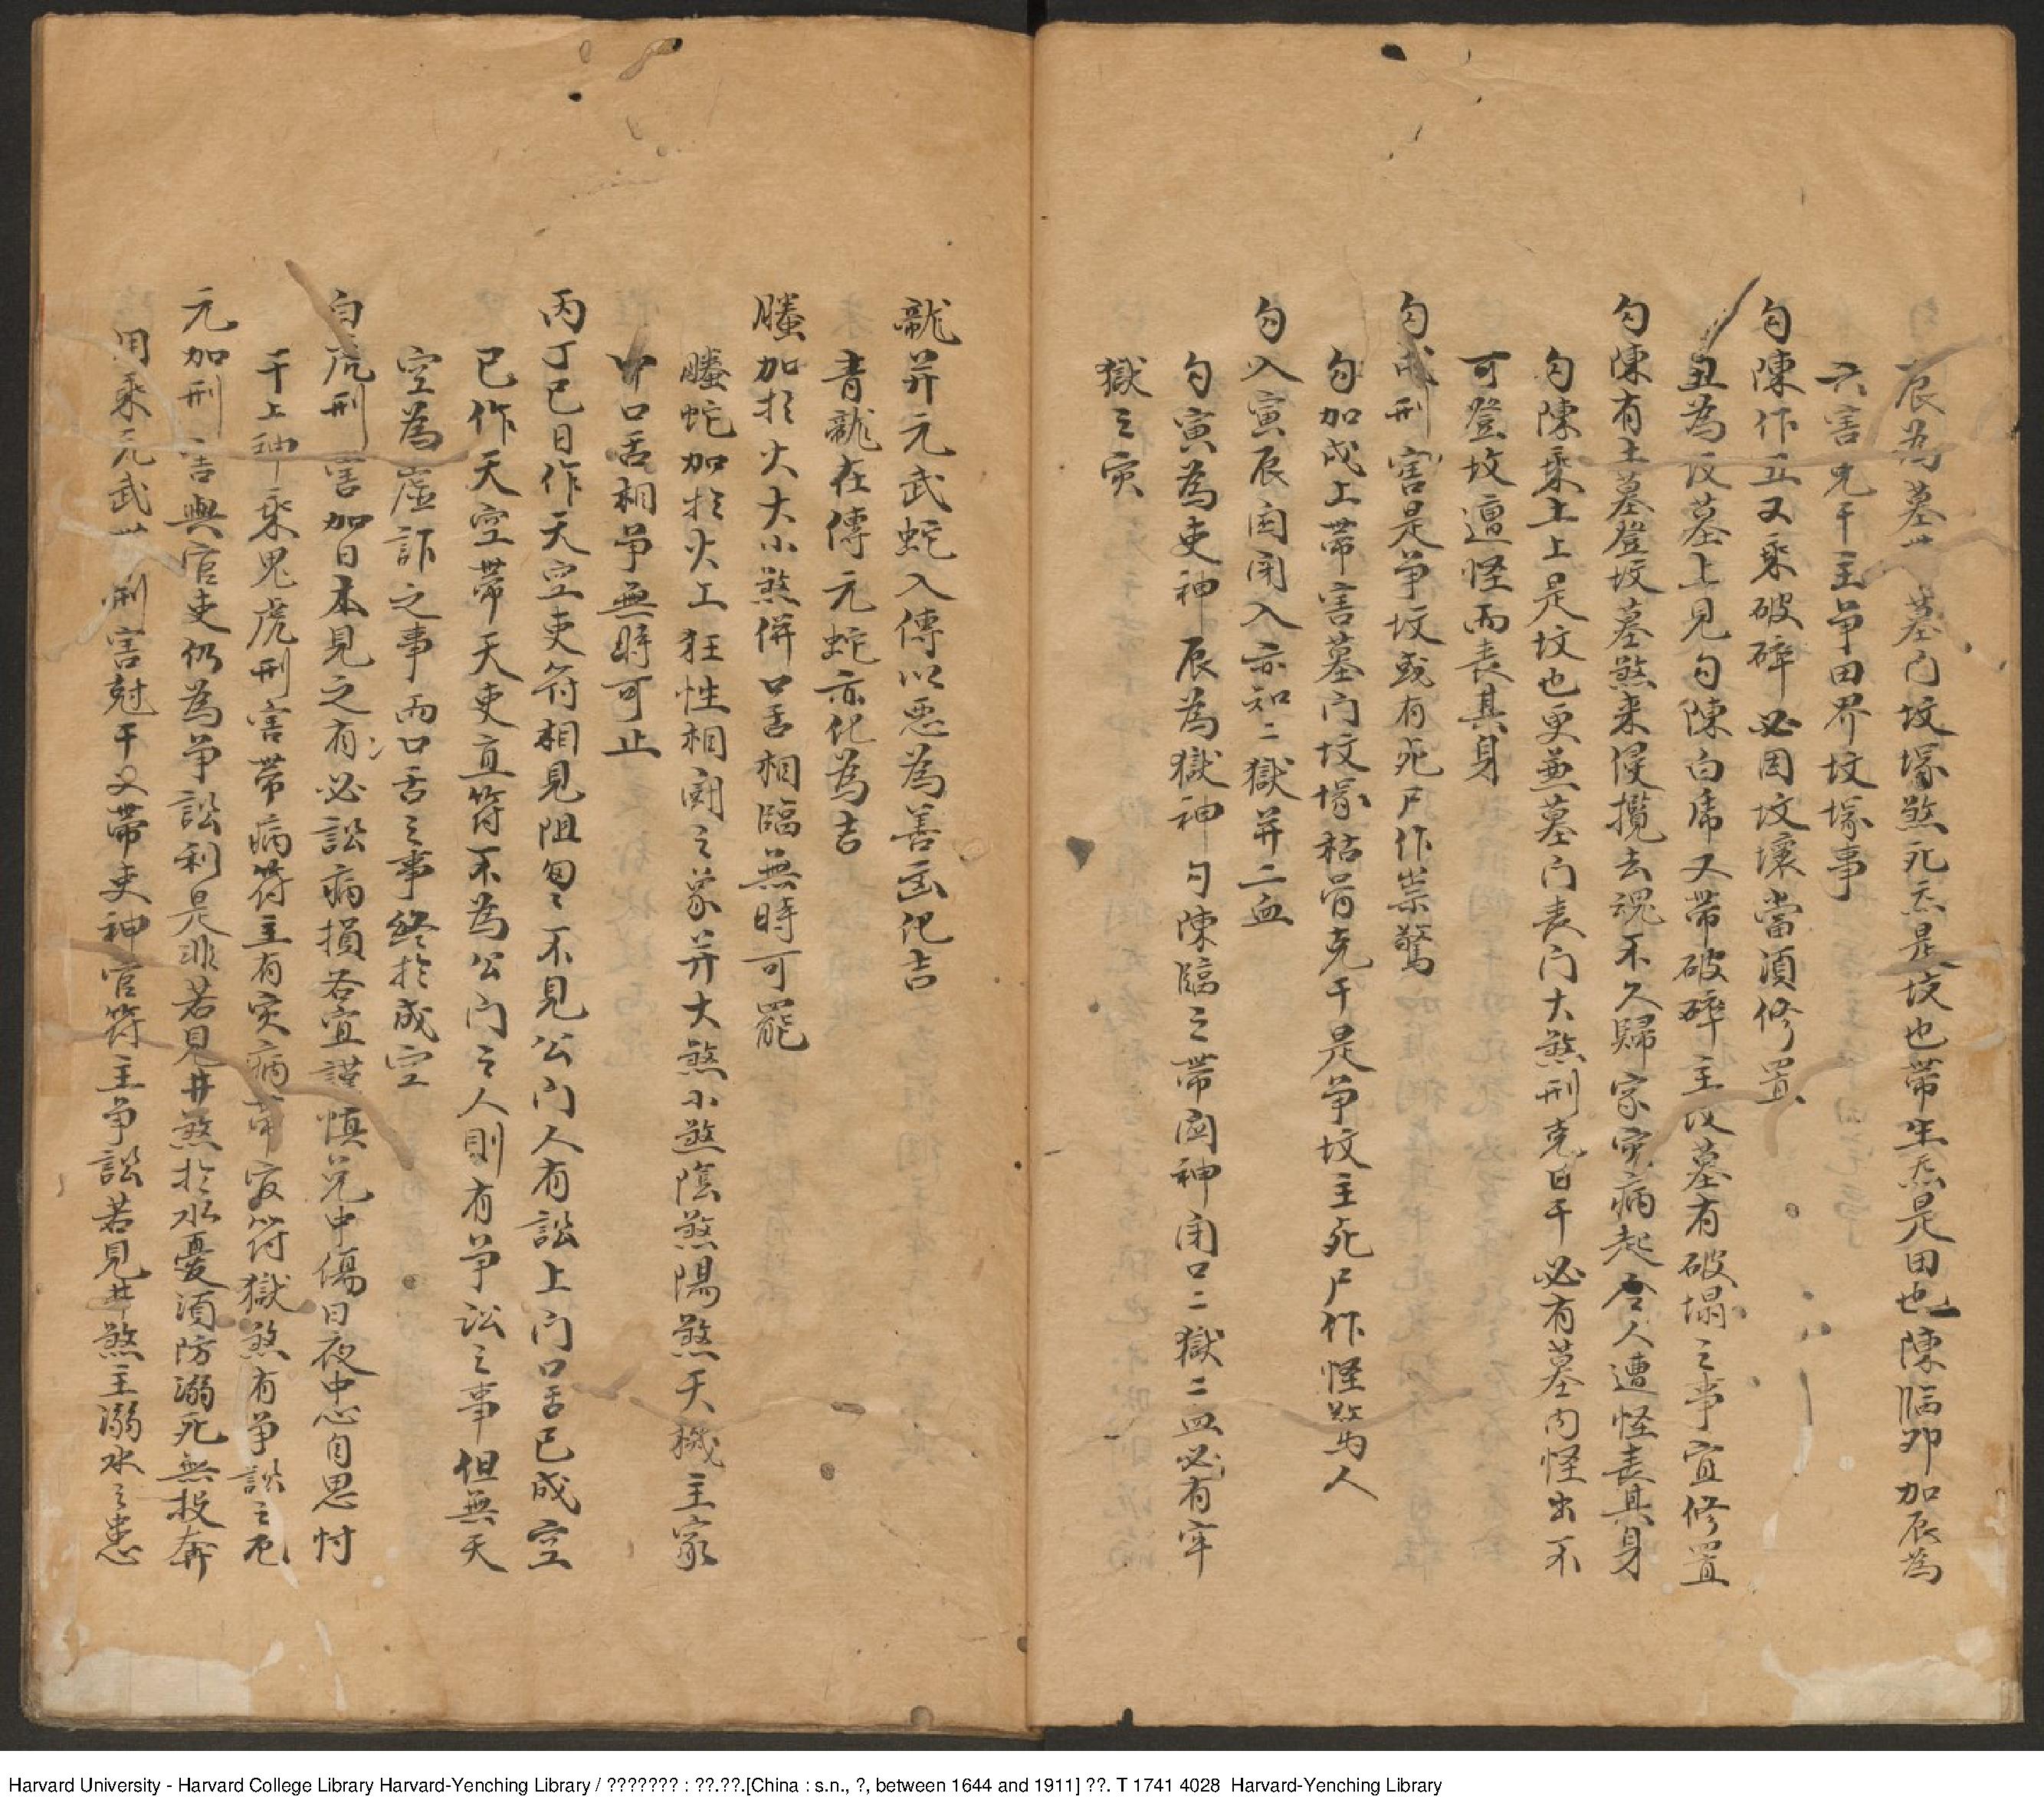 辰為墓 墓门坟塚煞死炁是坟也帶生炁是田也陳临卯加辰為
六害克干主争田界坟塚事
勾陳作丑又乘破碎必因坟壞當須修置
丑為坟墓上見勾陳白虎又帶破碎主坟墓有破塌之事宜修置
勾陳有土墓登坟墓煞来侵攪去魂不久歸家灾病起令人遭怪丧其身
勾陳乘土上是坟也更兼墓门丧门大煞刑克日干必有墓内怪出不
可登坟遭怪而丧其身
勾戌刑害是争坟或有死尸作祟驚
勾加戌上带害墓门坟塚枯骨克干是争坟主死尸作怪驚人
勾入寅辰囚闭入亦知二獄并二血
勾寅為吏神辰為獄神勾陳臨之带囚神闭口二獄二血必有牢
獄之灾
龍并元武蛇入傳以恶為善凶化吉
青龍在傳元蛇亦化為吉
螣加於火大小煞併口舌相臨無時可罷
螣蛇加於火上狂性相鬪之象并大煞小煞陰煞陽煞天機主家
口舌相争無時可止
丙丁巳日作天空吏符相見阻匆〻不見公门人有訟上门口舌已成空
已作天空带天吏直符不為公门之人則有争讼之事但無天
空為虚詐之事而口舌之事終於成空
白虎刑害加日本見之有必訟病損若宜謹慎 中傷日夜中心自思忖
干上神乘鬼虎刑害带病符主有灾病带官符獄煞有争訟之危
元加刑害與官吏仍為争訟利是非若見井煞於水憂須防溺死無投奔
用乘元武 刑害尅干又帶吏神官符主争訟若見井煞主溺水之患